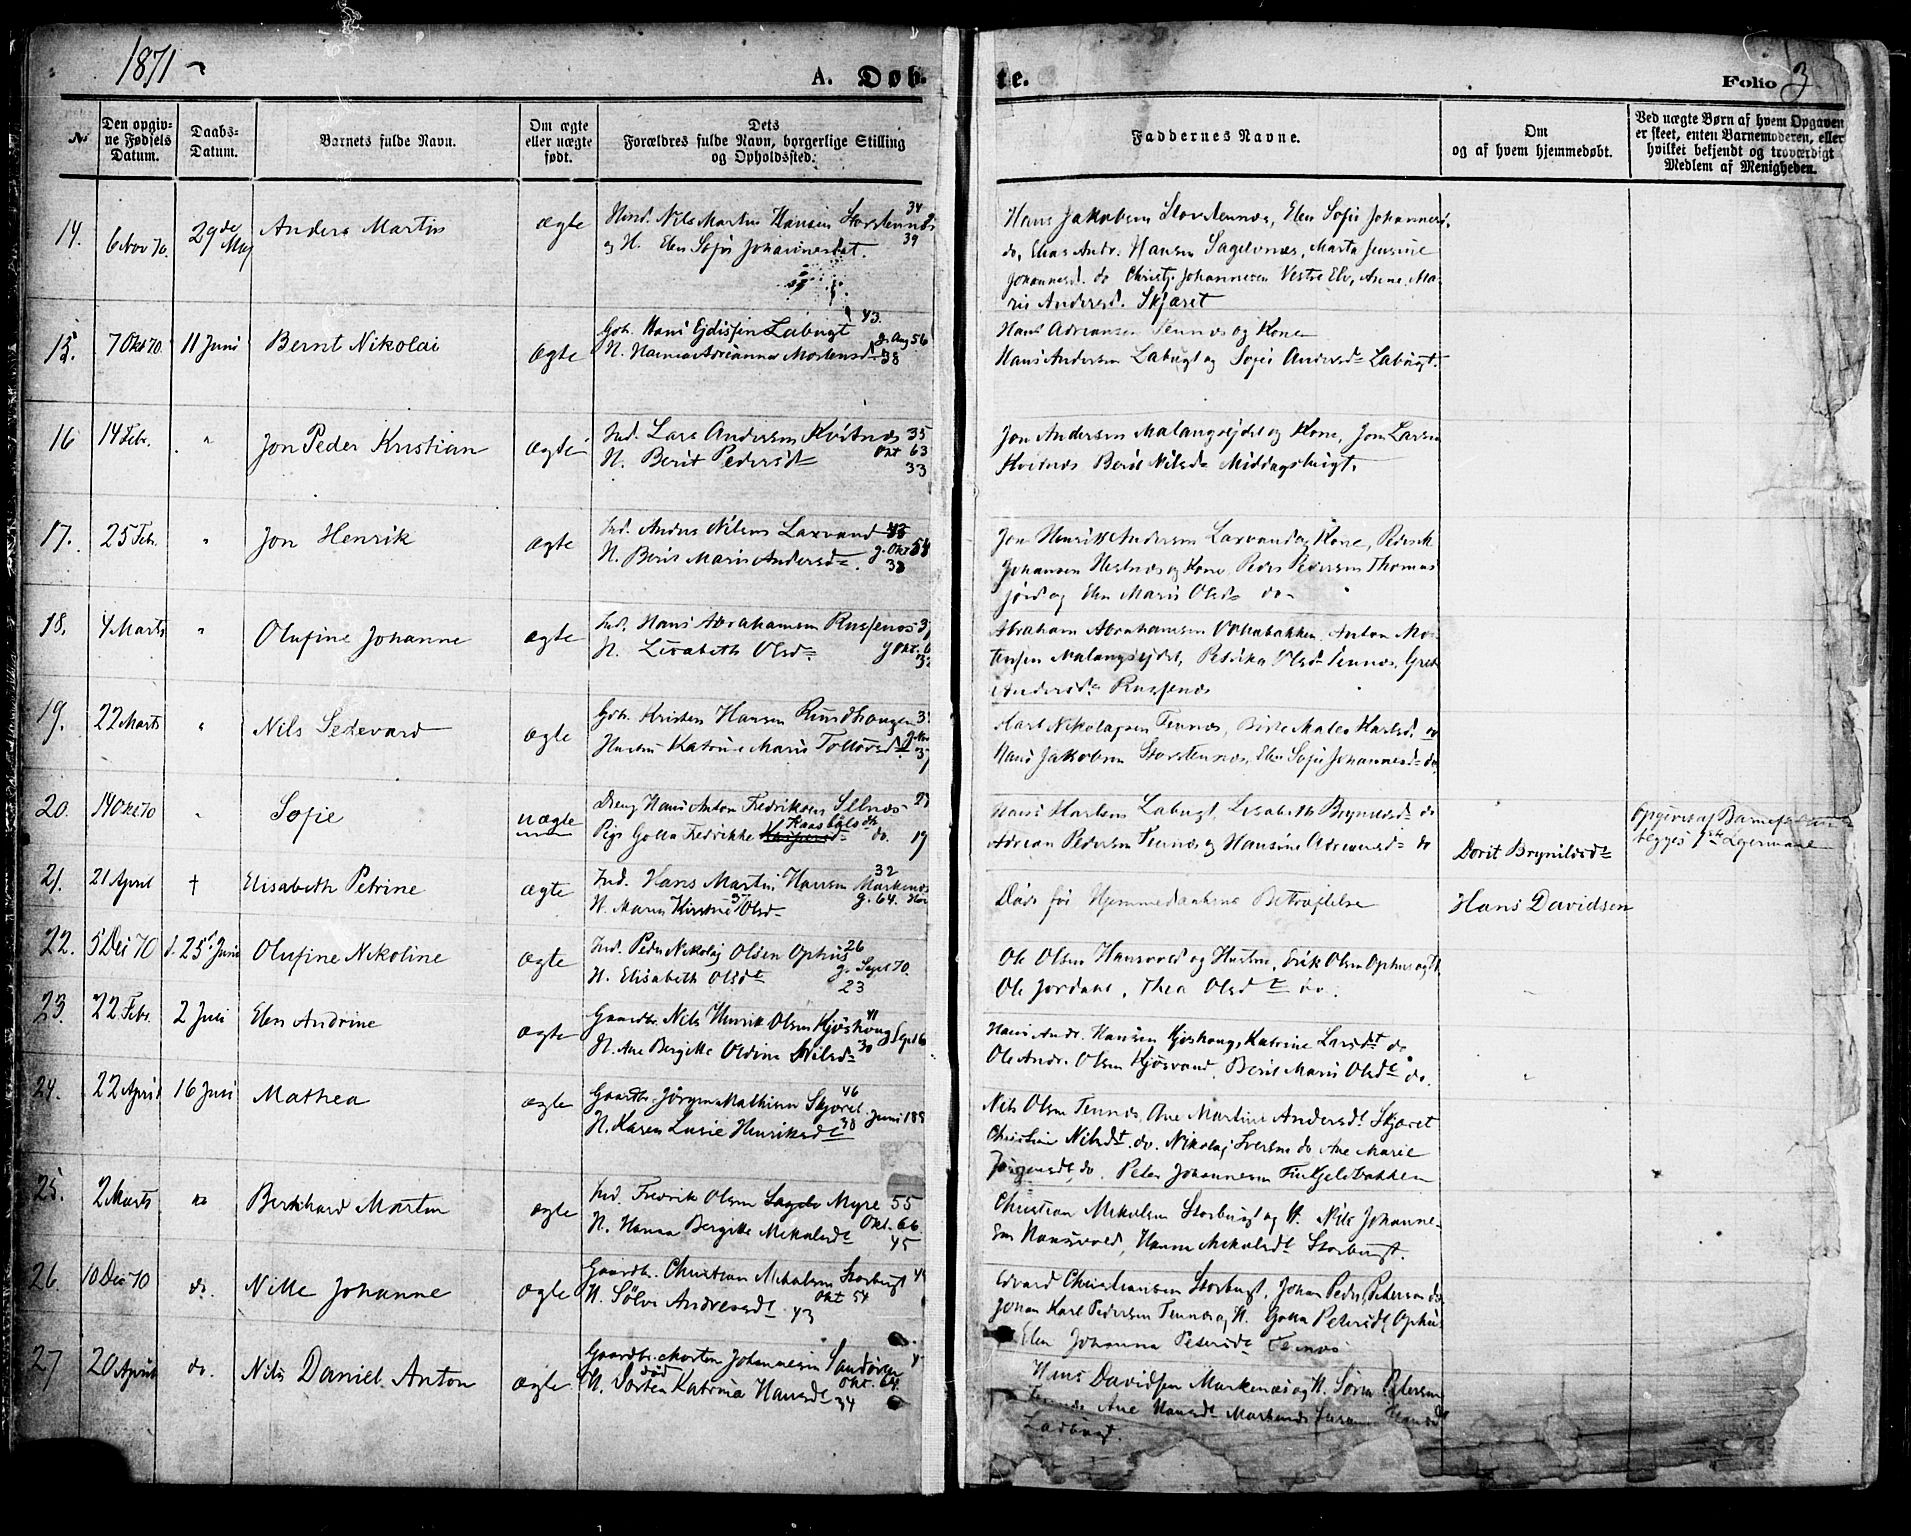 1871
A. Døb-
te.
Folio 3
№
Den opgiv-
ne Fødsels
Datum.
Daabs-
Datum.
Barnets fulde Navn.
Om ægte
eller uægte
født.
Dets
Forældres fulde Navn, borgerlige Stilling
og Opholdssted.
Faddernes Navne.
Om
og af hvem hjemmedøbt.
Ved uægte Børn af hvem Opgaven
er skeet, enten Barnemoderen, eller
hvilket bekjendt og troværdigt
Medlem af Menigheden.
14. 6 Nov 70. 29de Maj Anders Martin ægte
Ind. Nils Martin Hansen Storstennæs 34
og H. Elen Sofie Johannesdat. 39
Hans Jakobsen Storstennæs, Elen Sofie Johannesd.
do, Elias Andr. Hansen Sagelvnæs, Marta Jensine
Johannesd. do Christ. Johannesen Vestre Elv, Anne Ma-
rie Andersd. Skjæret
15. 7 Okt 70. 11 Juni Bernt Nikolai ægte
Hans Labugt 43.
H. Adrianna Mortensd. 38
Hans Adriansen Tennæs og Kone
Hans Andersen Labugt og Sofie Andersd. Labugt.
16 14 Febr. " Jon Peder Kristian ægte
Ind. Lars Andersen Kvitnæs 35
H. Berit Pedersd. Okt 63
33
Jon Andersen Malangsejdet og Kone, Jon Larsen
Kvitnæs Berit Nilsd. Middagsbugt.
17. 25 Febr. " Jon Henrik ægte
Ind. Anders Nilsen Laxvand
H. Berit Marie Andersd. g. Okt 54
38
Jon Henrik Andersen Laxvand og Kone, Peder
Johansen Hestnæs og Kone, Peder Pedersen Thomas
jord og Elen Marie Olsd. do
18. 4 Marts " Olufine Johanne ægte
Ind. Hans Abrahamsen Russenæs
H. Lisabeth Olsd.
Abraham Abrahamsen, Anton Mor-
tensen Malangsejdet, Petrika Olsd. Tennæs, Grete
Andersd. Russenæs
19. 22 Marts " Nils Sedevard ægte
Gbr. Kristen Hansen Rundhaugen
Hustru Katrine Marie Tollevsd.
Karl Nikolajsen Tennæs, Karlsd. do
Hans Jakobsen Storstennæs, Elen Sofie Johannesd. do.
20. 14 Okt 70 " Sofie uægte
Dreng Hans Anton Fredriksen Selnæs 27
Pige Golla Fredrikke do. 19
Hans Karlsen Labugt, Lisabeth Brynildsd. do
Adrian Pedersen Tennæs og Hansine Adriansd. do
Dorit Brynildsd.
Opgivet af
begges 1ste Legermaal
21. 21 April † Elisabeth Petrine ægte
Ind. Hans Martin Hansen Markenæs 32
H. Maren Kirstine Olsd. g. 64.
Døde før Hjemmedaabens Bekræftelse
Hans Davidsen
22. 5 Dec 70 d. 25de Juni Olufine Nikoline ægte
Ind. Peder Nikolaj Olsen Ophus 26
H. Elisabeth Olsdt g. Sept 70.
23
Ole Olsen Hansvold og Hustru, Erik Olsen Ophus og H.
Ole Jordan, Thea Olsdt do.
23. 22 Febr. 2 Juli Elen Andrine ægte
Gaardbr. Nils Henrik Olsen Kjøshaug 41
H. Ane Bergitte Oldine Nilsd. 30
Hans Andr. Hansen Kjøshaug, Katrine Larsdt do
Ole Andr. Olsen Kjøsvand, Berit Marie Olsdt do.
24. 22 April 16 Juli Mathea ægte
Gaardbr. Jørgen Mathisen Skjæret 46
H. Karen Lusie Henriksdt 38 Juni
Nils Olsen Tennæs, Ane Martine Andersdt Skjæret
Christine Nilsdt. do. Nikolaj Iversen do Ane Marie
Jørgensdt do. Peter Johannesen Finkjelsbakken
25. 2 Marts do Bernhard Martin ægte
Ind. Fredrik Olsen Myre 55
H. Hanna Bergitte Mikalsdt Okt. 66
45
Christian Mikalsen Storbugt og H. Nils Johanne-
sen Hansvold, Hanna Mikalsdt Storbugt.
26. 10 Dec 70 do. Nille Johanne ægte
Gaardbr. Christian Mikalsen Storbugt
H. Sølvi Andreasdt Okt 54
43
Edvard Christiansen Storbugt, Johan Peder Petersen do
Johan Karl Pedersen Tennæs og H. Golla Petersdt Ophus
Elen Johanna Petersdt Tennæs
27 20 April do. Nils Daniel Anton ægte
Gaardbr. Morten Johannesen Sandøren
død
H. Katrina Hansdt Okt. 64.
34
Hans Davidsen Markenæs og H. Søren Petersen
Tennæs Ane Hansdt Markenæs Hansdt
Ladbugt.